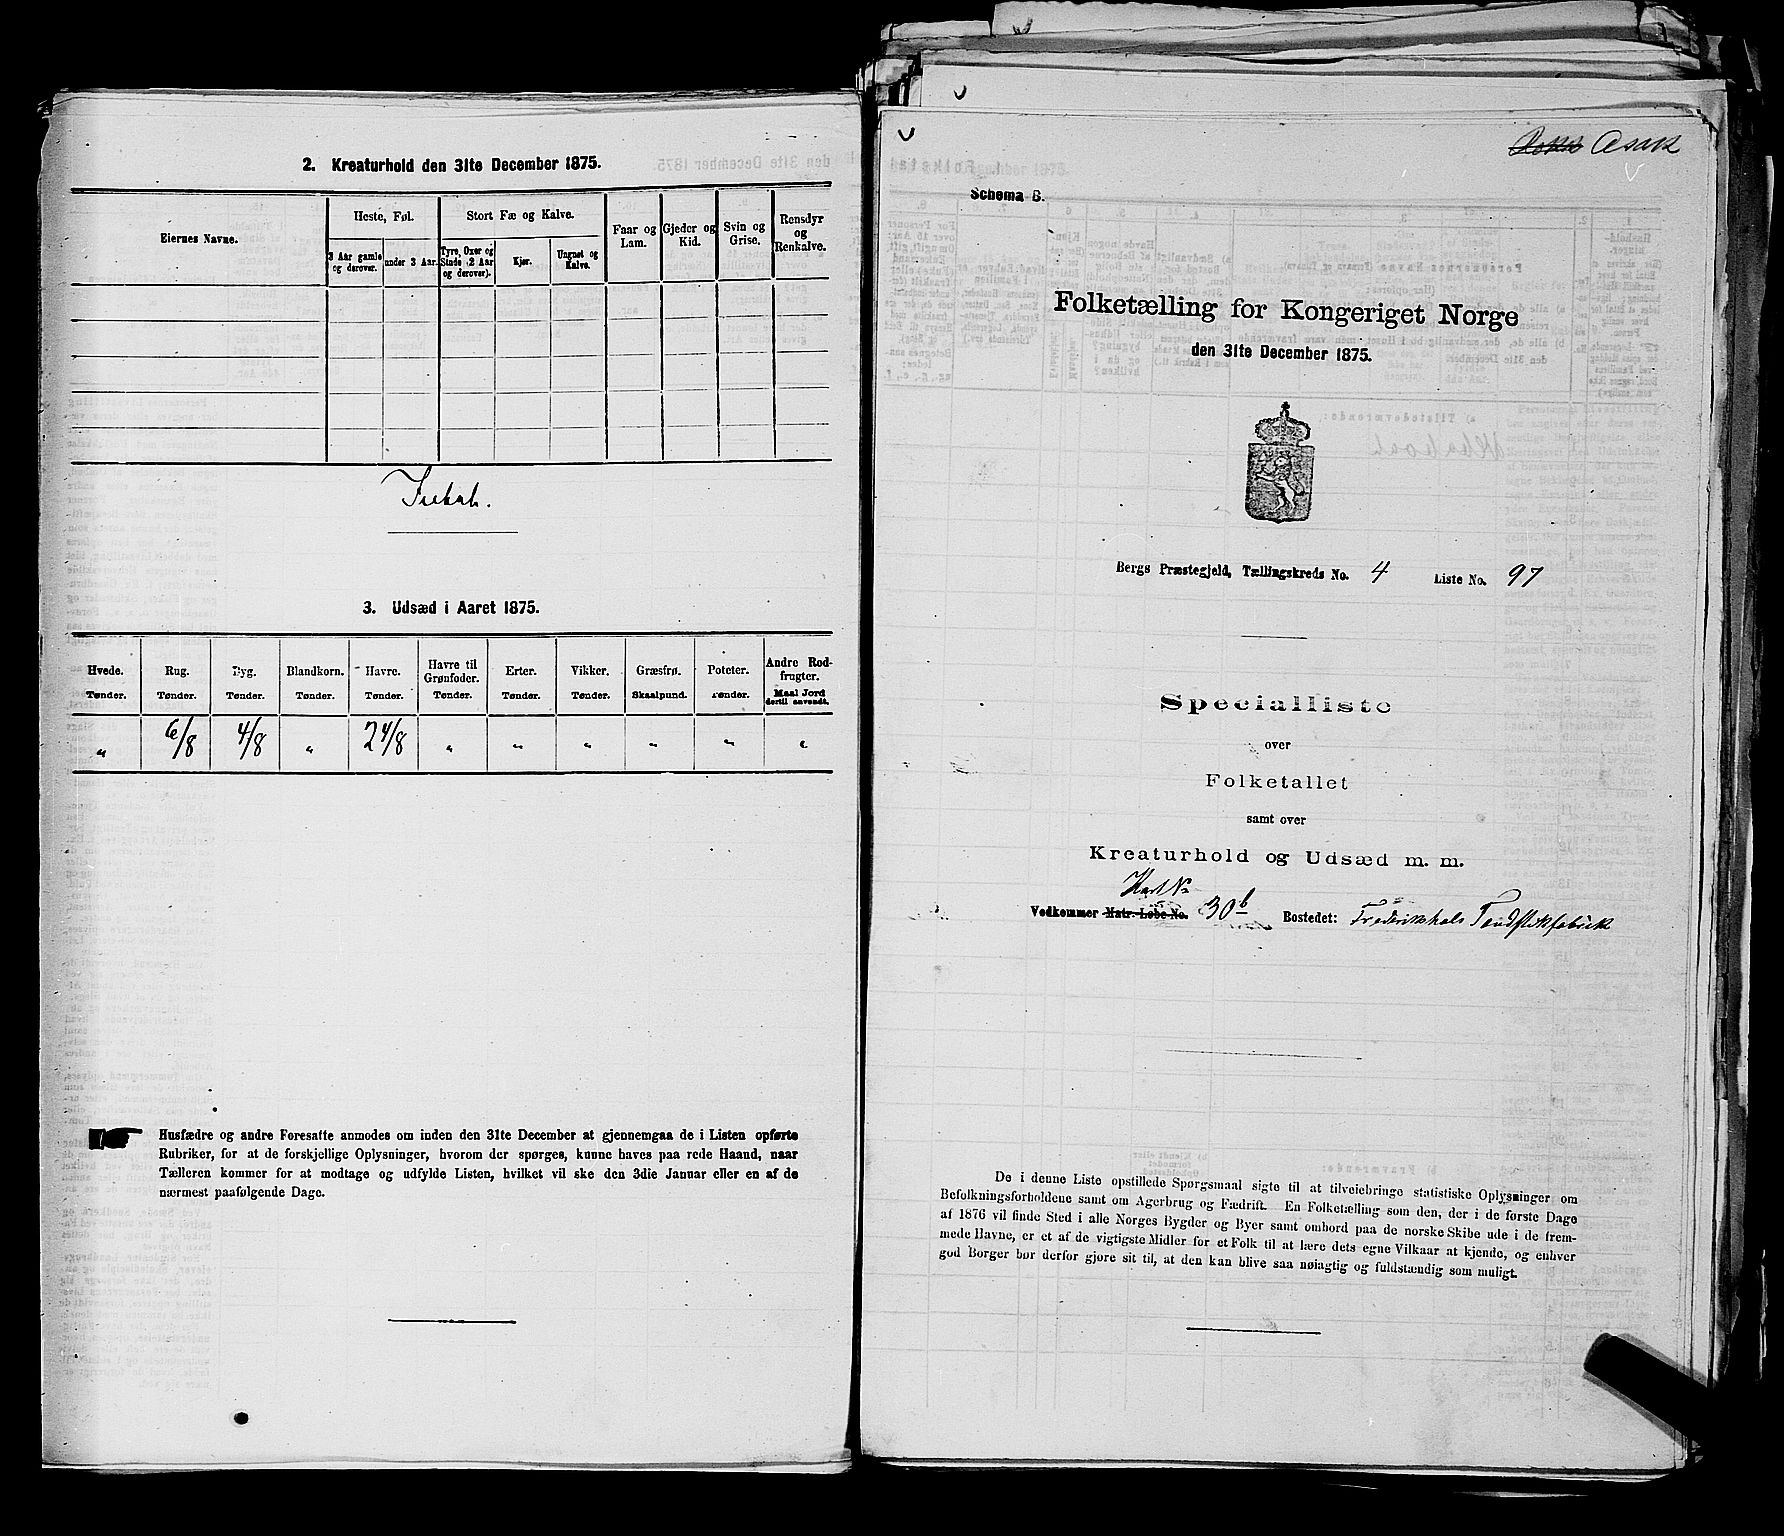 2. Kreaturhold den 31te December 1875.
Eiernes Navne.
Heste, Føl.
3 Aar gamle og derover.
under 3 Aar.
Stort Fæ og Kalve.
Tyre, Oxer og Stude (2 Aar og derover).
Kjør.
Ungnøt og Kalve.
Faar og Lam.
Gjeder og Kid.
Svin og Grise.
Rensdyr og Renkalve.
3. Udsæd i Aaret 1875.
Hvede. Rug. Byg. Blandkorn. Havre. Havre til Grønfoder. Erter. Vikker. Græsfrø. Poteter. Andre Rodfrugter.
Tønder. Tønder. Tønder. Tønder. Tønder. Tønder. Tønder. Tønder. Skaalpund. Tønder. Maal Jord dertil anvendt.
„ 6/8 4/8 „ 2 4/8 „ „ „ „ „ „
Husfædre og andre Foresatte anmodes om inden den 31te December at gjennemgaa de i Listen opførte
Rubriker, for at de forskjellige Oplysninger, hvorom der spørges, kunne haves paa rede Haand, naar
Tælleren kommer for at modtage og udfylde Listen, hvilket vil ske den 3die Januar eller en af de
nærmest paafølgende Dage.
Asak
Schema B.
Folketælling for Kongeriget Norge
den 31te December 1875.
Bergs Præstegjeld, Tællingskreds No. 4 Liste No. 97
Specialliste
over
Folketallet
samt over
Kreaturhold og Udsæd m. m.
Kart No
Vedkommer Matr.-Løbe-No. 30b Bostedet: Frederikshals Tændstikfabrik
De i denne Liste opstillede Spørgsmaal sigte til at tilveiebringe statistiske Oplysninger om
Befolkningsforholdene samt om Agerbrug og Fædrift. En Folketælling som den, der i de første Dage
af 1876 vil finde Sted i alle Norges Bygder og Byer samt ombord paa de norske Skibe ude i de frem-
mede Havne, er et af de vigtigste Midler for et Folk til at lære dets egne Vilkaar at kjende, og enhver
god Borger bør derfor gjøre sit til, at den kan blive saa nøiagtig og fuldstændig som muligt.